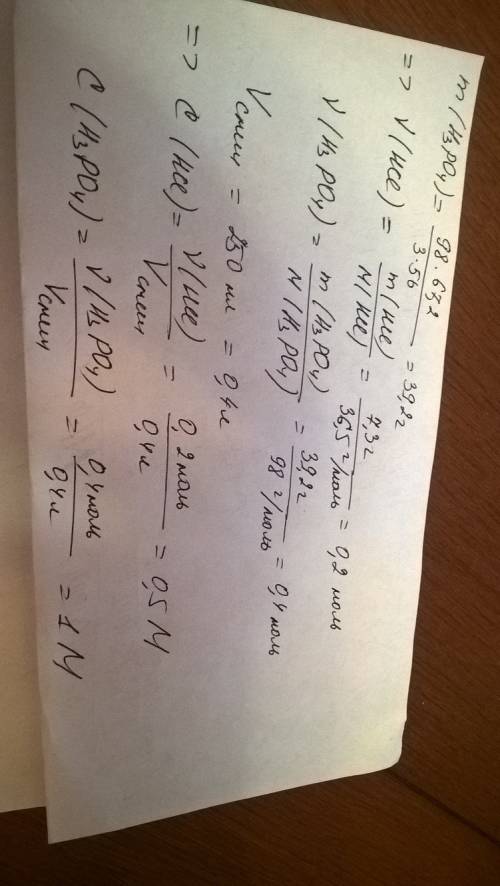 m(H₃PO₄) = 98·67,2 / 3·56 = 39,2г
=> ν(HCl) = m(HCl) / M(HCl) = 7,3г / 36,5 г/моль = 0,2 моль
ν(H₃PO₄) = m(H₃PO₄) / M(H₃PO₄) = 39,2г / 98 г/моль = 0,4 моль
Vсмеси = 250 мл = 0,4л
=> C(HCl) = ν(HCl) / Vсмеси = 0,2 моль / 0,4л = 0,5 M
C(H₃PO₄) = ν(H₃PO₄) / Vсмеси = 0,4 моль / 0,4л = 1 M